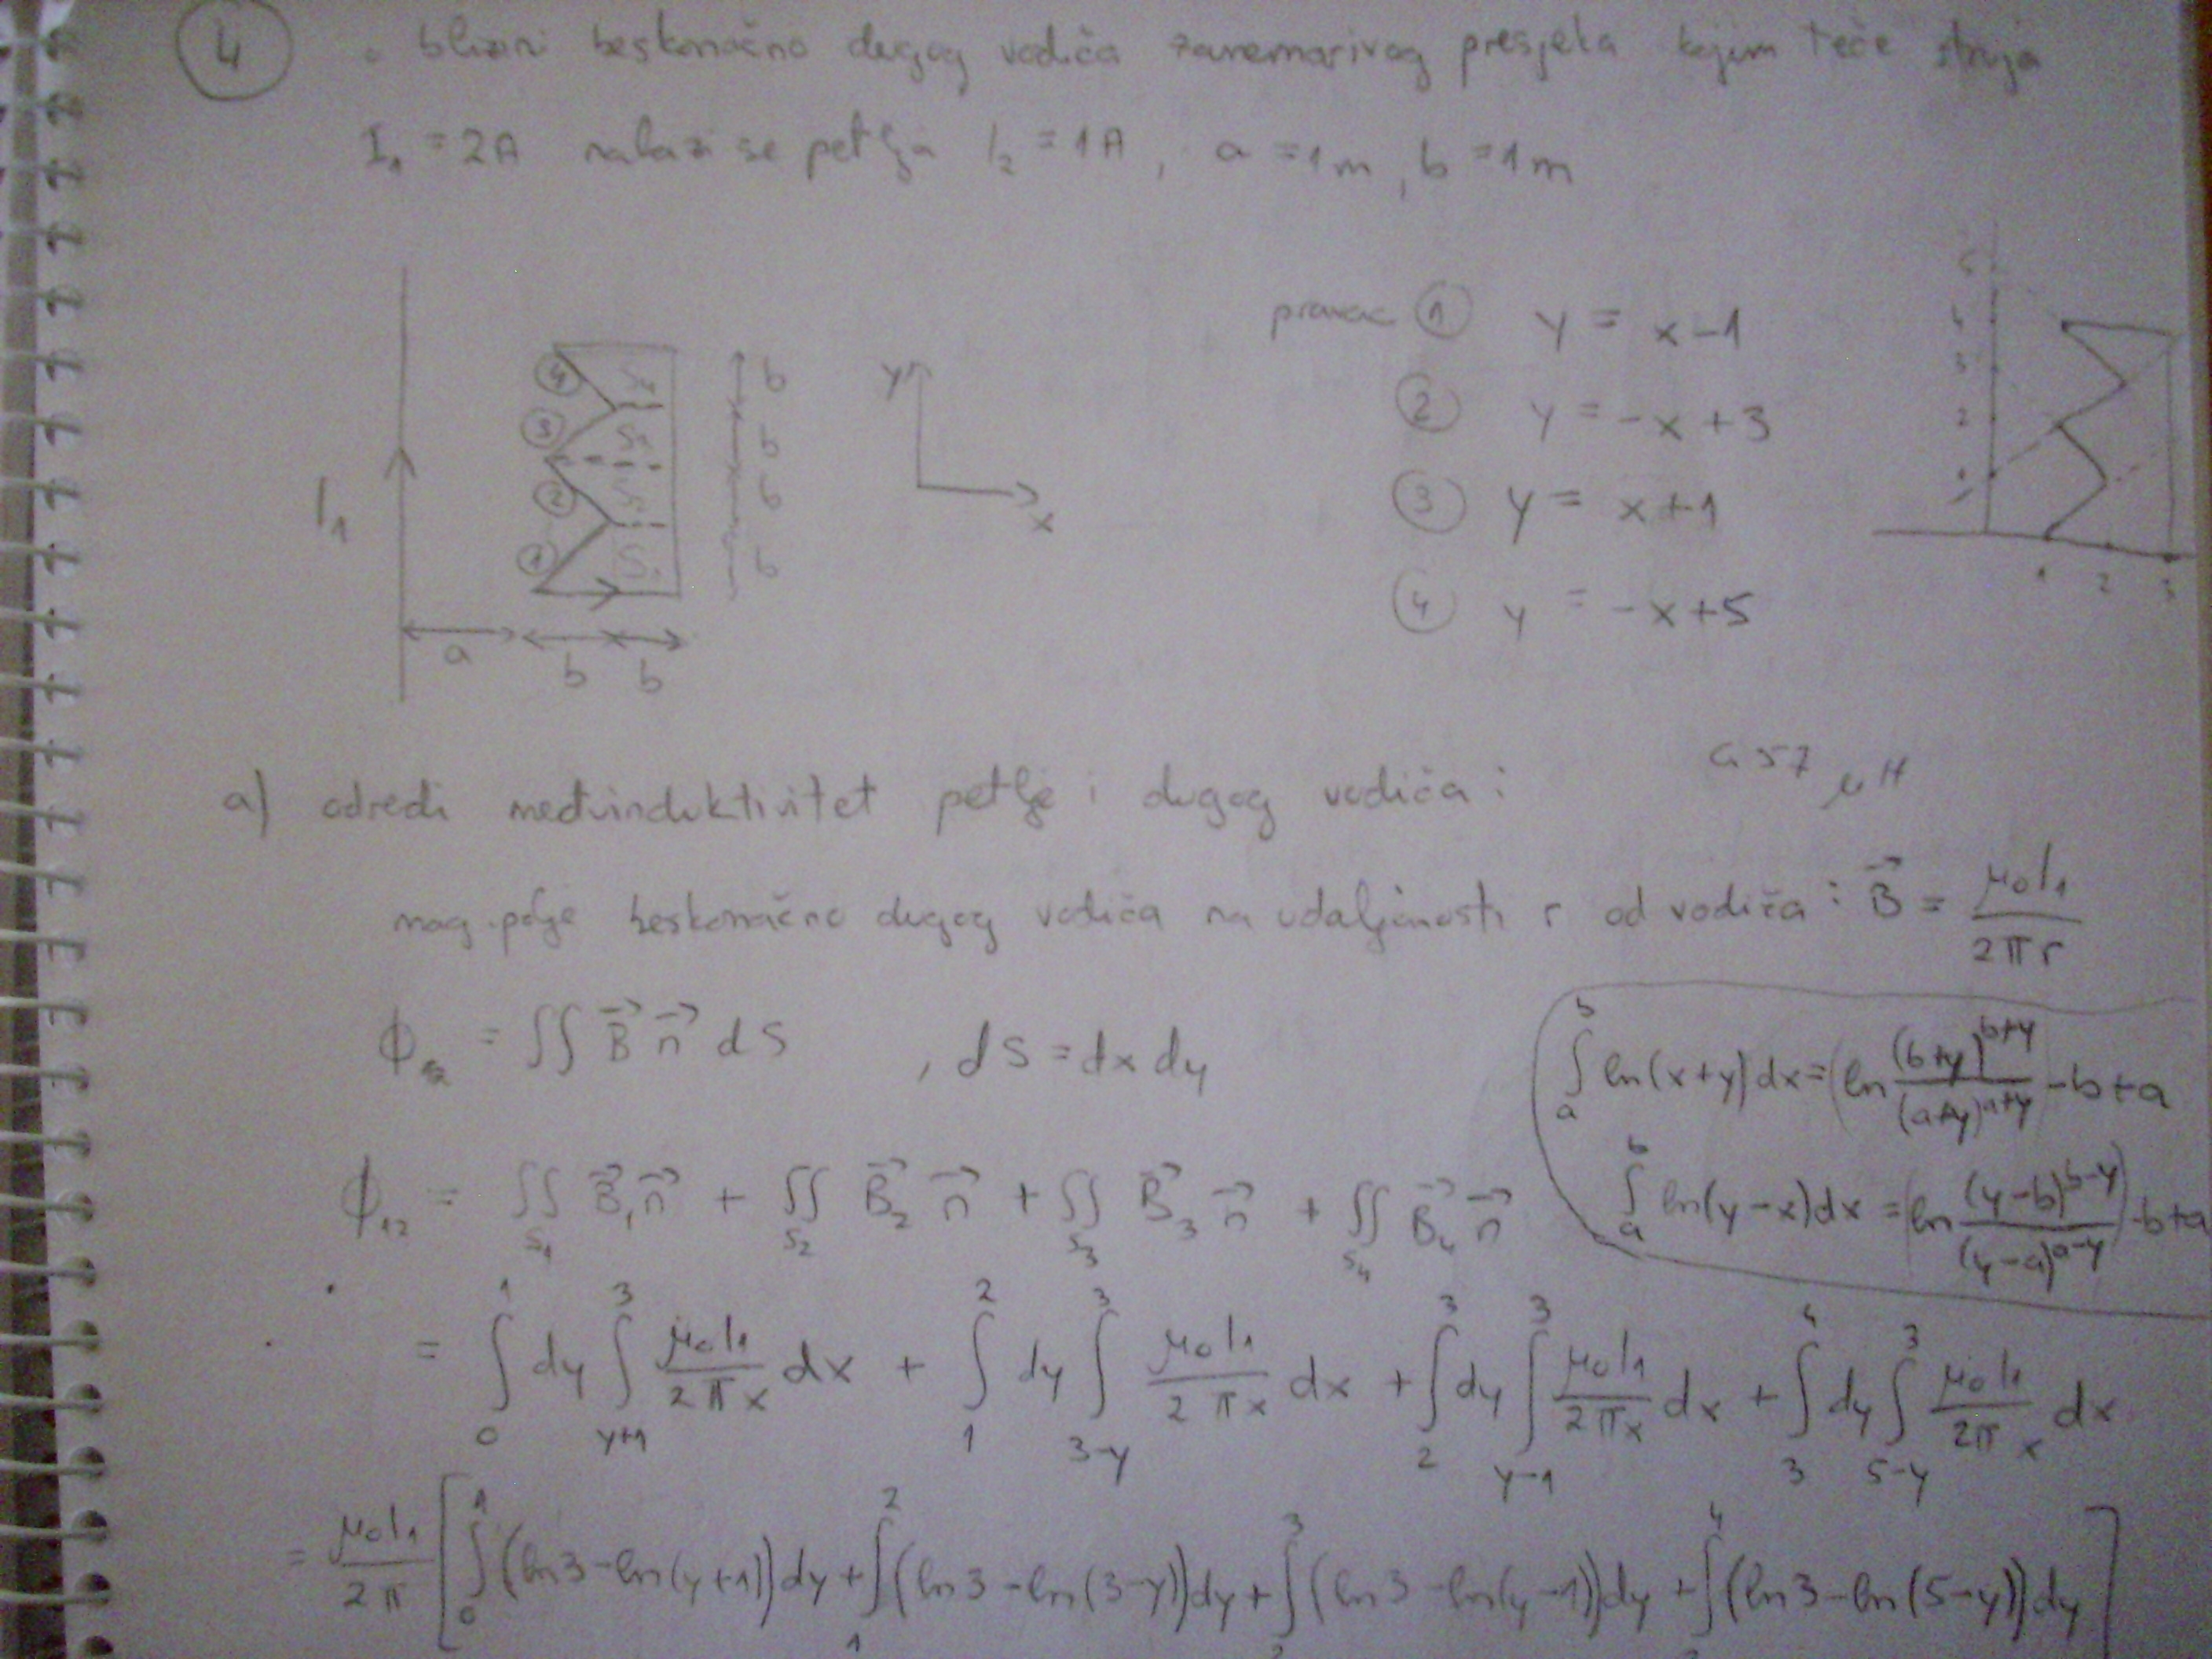 4 . blizini beskonačno dugog vodiča zanemarivog presjeka kojim teče struja
I₁ = 2A nalazi se petlja I₂ = 1A, a = 1m, b = 1m
pravac ① y = x-1
② y = -x+3
③ y = x+1
④ y = -x+5
I₁
④ ③ ② ①
S₄ S₃ S₂ S₁
b b b b
a b b
y x
5 4 3 2 1
1 2 3
μH
a) odredi međuinduktivitet petlje i dugog vodiča :
mag. polje beskonačno dugog vodiča na udaljenosti r od vodiča : B⃗ = μ₀I₁ / 2πr
Φ₁₂ = ∬ B⃗ n⃗ dS , dS = dx dy
∫ₐᵇ ln(x+y)dx = (ln (b+y)^(b+y) / (a+y)^(a+y)) -b+a
∫ₐᵇ ln(y-x)dx = (ln (y-b)^(b-y) / (y-a)^(a-y)) -b+a
Φ₁₂ = ∬_S₁ B⃗₁n⃗ + ∬_S₂ B⃗₂ n⃗ + ∬_S₃ B⃗₃ n⃗ + ∬_S₄ B⃗₄ n⃗
= ∫₀¹ dy ∫_(y+1)^3 μ₀I₁/2πx dx + ∫₁² dy ∫_(3-y)^3 μ₀I₁/2πx dx + ∫₂³ dy ∫_(y-1)^3 μ₀I₁/2πx dx + ∫₃⁴ dy ∫_(5-y)^3 μ₀I₁/2πx dx
= μ₀I₁/2π [ ∫₀¹ (ln3-ln(y+1))dy + ∫₁² (ln3-ln(3-y))dy + ∫₂³ (ln3-ln(y-1))dy + ∫₃⁴ (ln3-ln(5-y))dy ]